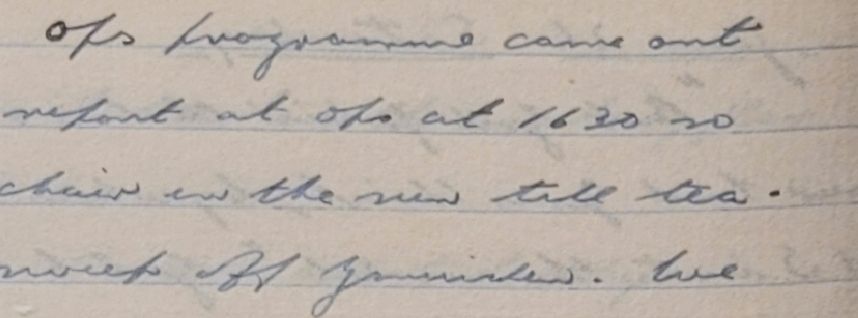 ops programme came out
report at ops at 1630 so
chair in the sun till tea.
sweep off Ijmuiden. We